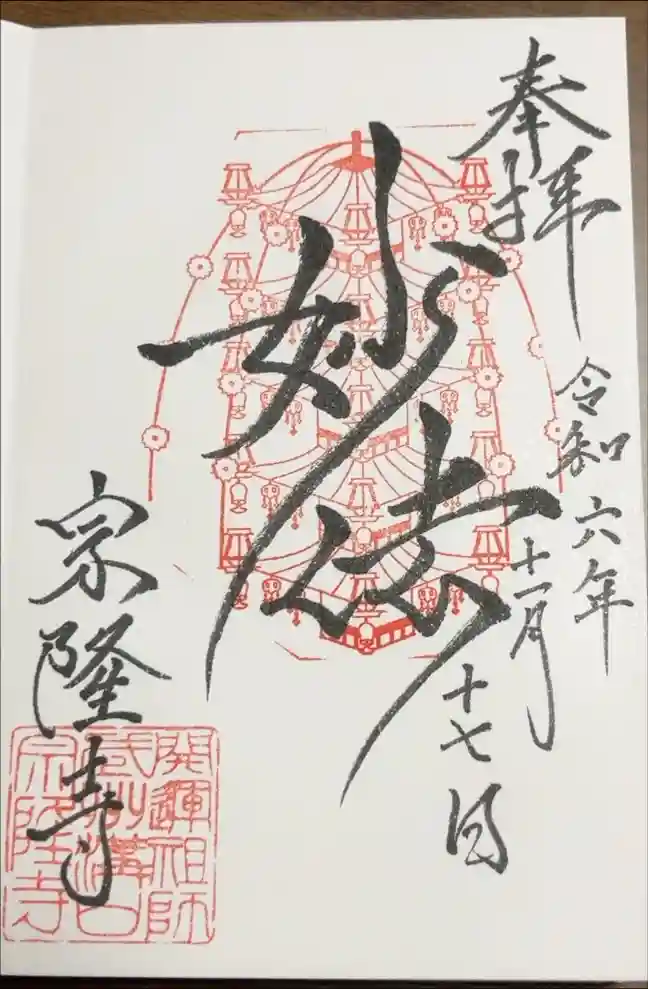 奉拝
令和六年
十一月
十七日
妙法
宗隆寺
開運祖師
武州溝口
宗隆寺